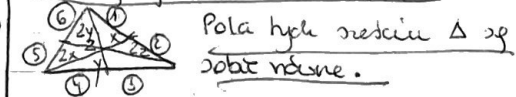 6 1
2y x
5 2x z 2z 2
y
4 3
Pola tych sześciu Δ są
sobie równe.